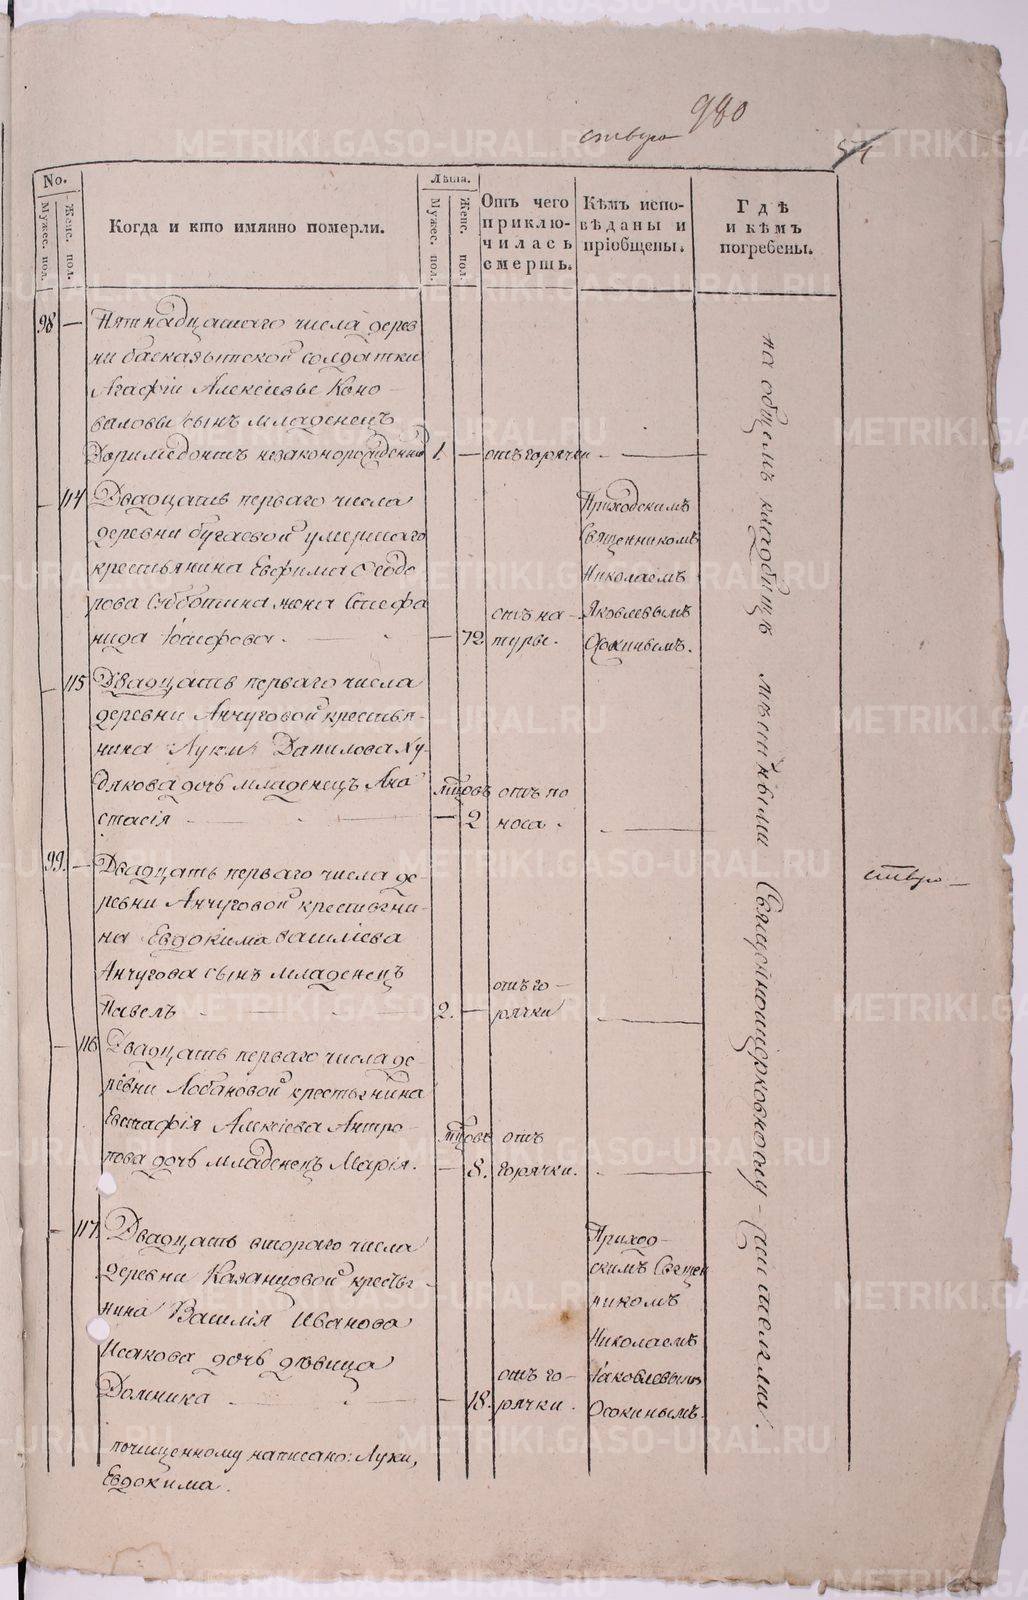 980
54
No.
Мужес. пол.
Женс. пол.
Когда и кто имянно померли.
Лѣта.
Мужес. пол.
Женс. пол.
Отъ чего
приклю-
чилась
смерть.
Кѣмъ испо-
вѣданы и
пріобщены.
Гдѣ
и кѣмъ
погребены.
98 — Пятнадцатаго числа дерев
ни солдатки
Агафіи Алексіевы Коно-
валовы сынъ младенецъ
Доримедонтъ незаконорожденный 1. — отъ горячки —
— 114 Двадцать перваго числа
деревни бугаевой умершаго
крестьянина Евфима Ѳеодо
рова Субботина жена Стефа
нида Іосифова. — 72 отъ на-
туры.
Приходскимъ
Священникомъ
Николаемъ
Яковлевымъ
Осокинымъ.
— 115 Двадцать перваго числа
деревни Анчуговой крестья-
нина Луки Данилова Ху-
дякова дочь младенецъ Ана
стасія — 2 отъ по
носа. —
99. — Двадцать перваго числа де
ревни Анчуговой крестьяни-
на Евдокима Василіева
Анчугова сынъ младенецъ
Павелъ 2. — отъ го-
рячки —
— 116 Двадцать перваго числа де-
ревни Лобановой крестьянина
Евстафія Алексіева Антро-
пова дочь младенецъ Марія. — 8. отъ
горячки. —
— 117. Двадцать втораго числа
деревни Казанцовой крестья-
нина Василія Иванова
Исакова дочь дѣвица
Домника — 18. отъ го-
рячки.
Приход-
скимъ Священ
никомъ
Николаемъ
Яковлевымъ
Осокинымъ.
на общемъ кладбищѣ мѣстными Священноцерковнослужителями.
почищенному написано: Луки,
Евдокима.
METRIKI.GASO-URAL.RU